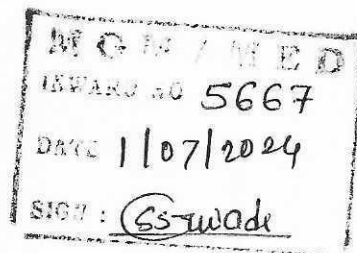 MGM / MED
INWARD NO 5667
DATE 1/07/2024
SIGN :